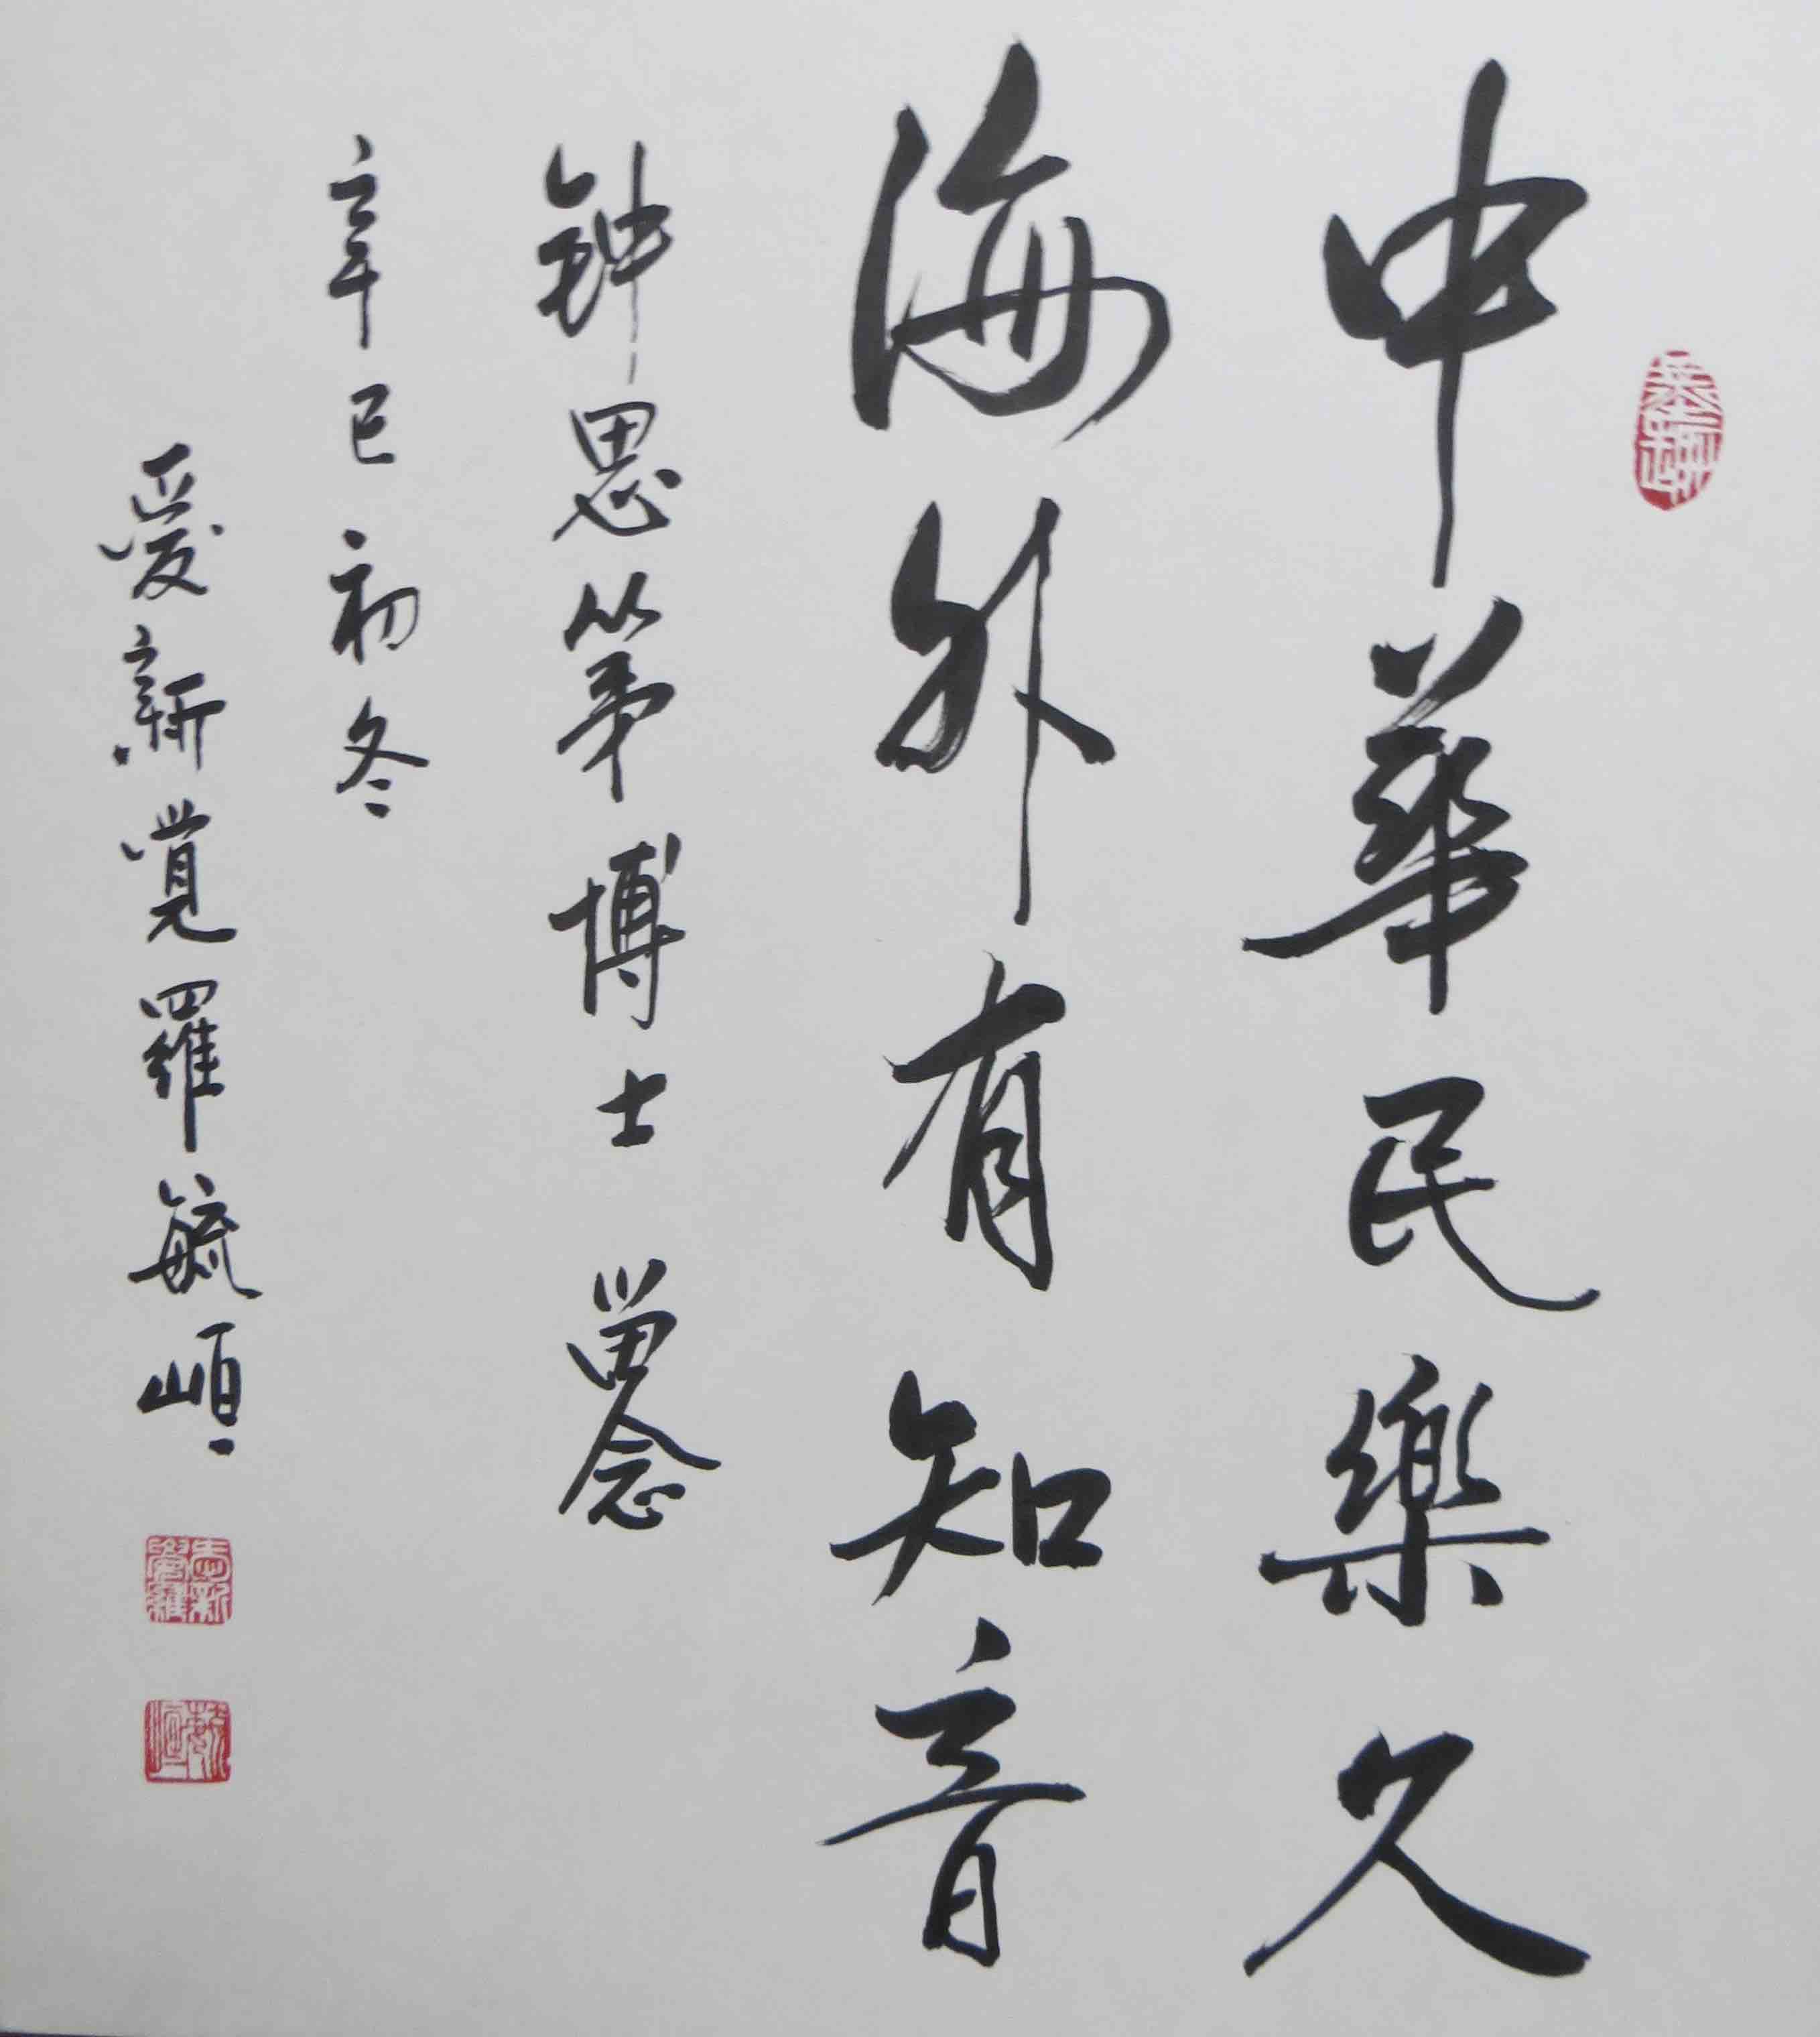 中華民樂久
海外有知音
钟思第博士 留念
辛巳初冬
愛新覺羅毓峘
愛新覺羅